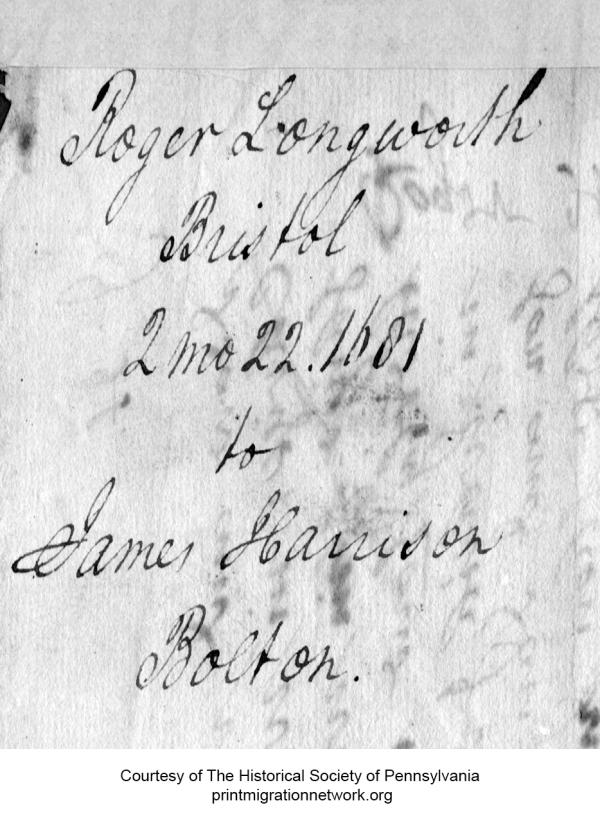 Roger Longworth
Bristol
2 mo 22. 1681
to
James Harrison
Bolton.
Courtesy of The Historical Society of Pennsylvania
printmigrationnetwork.org